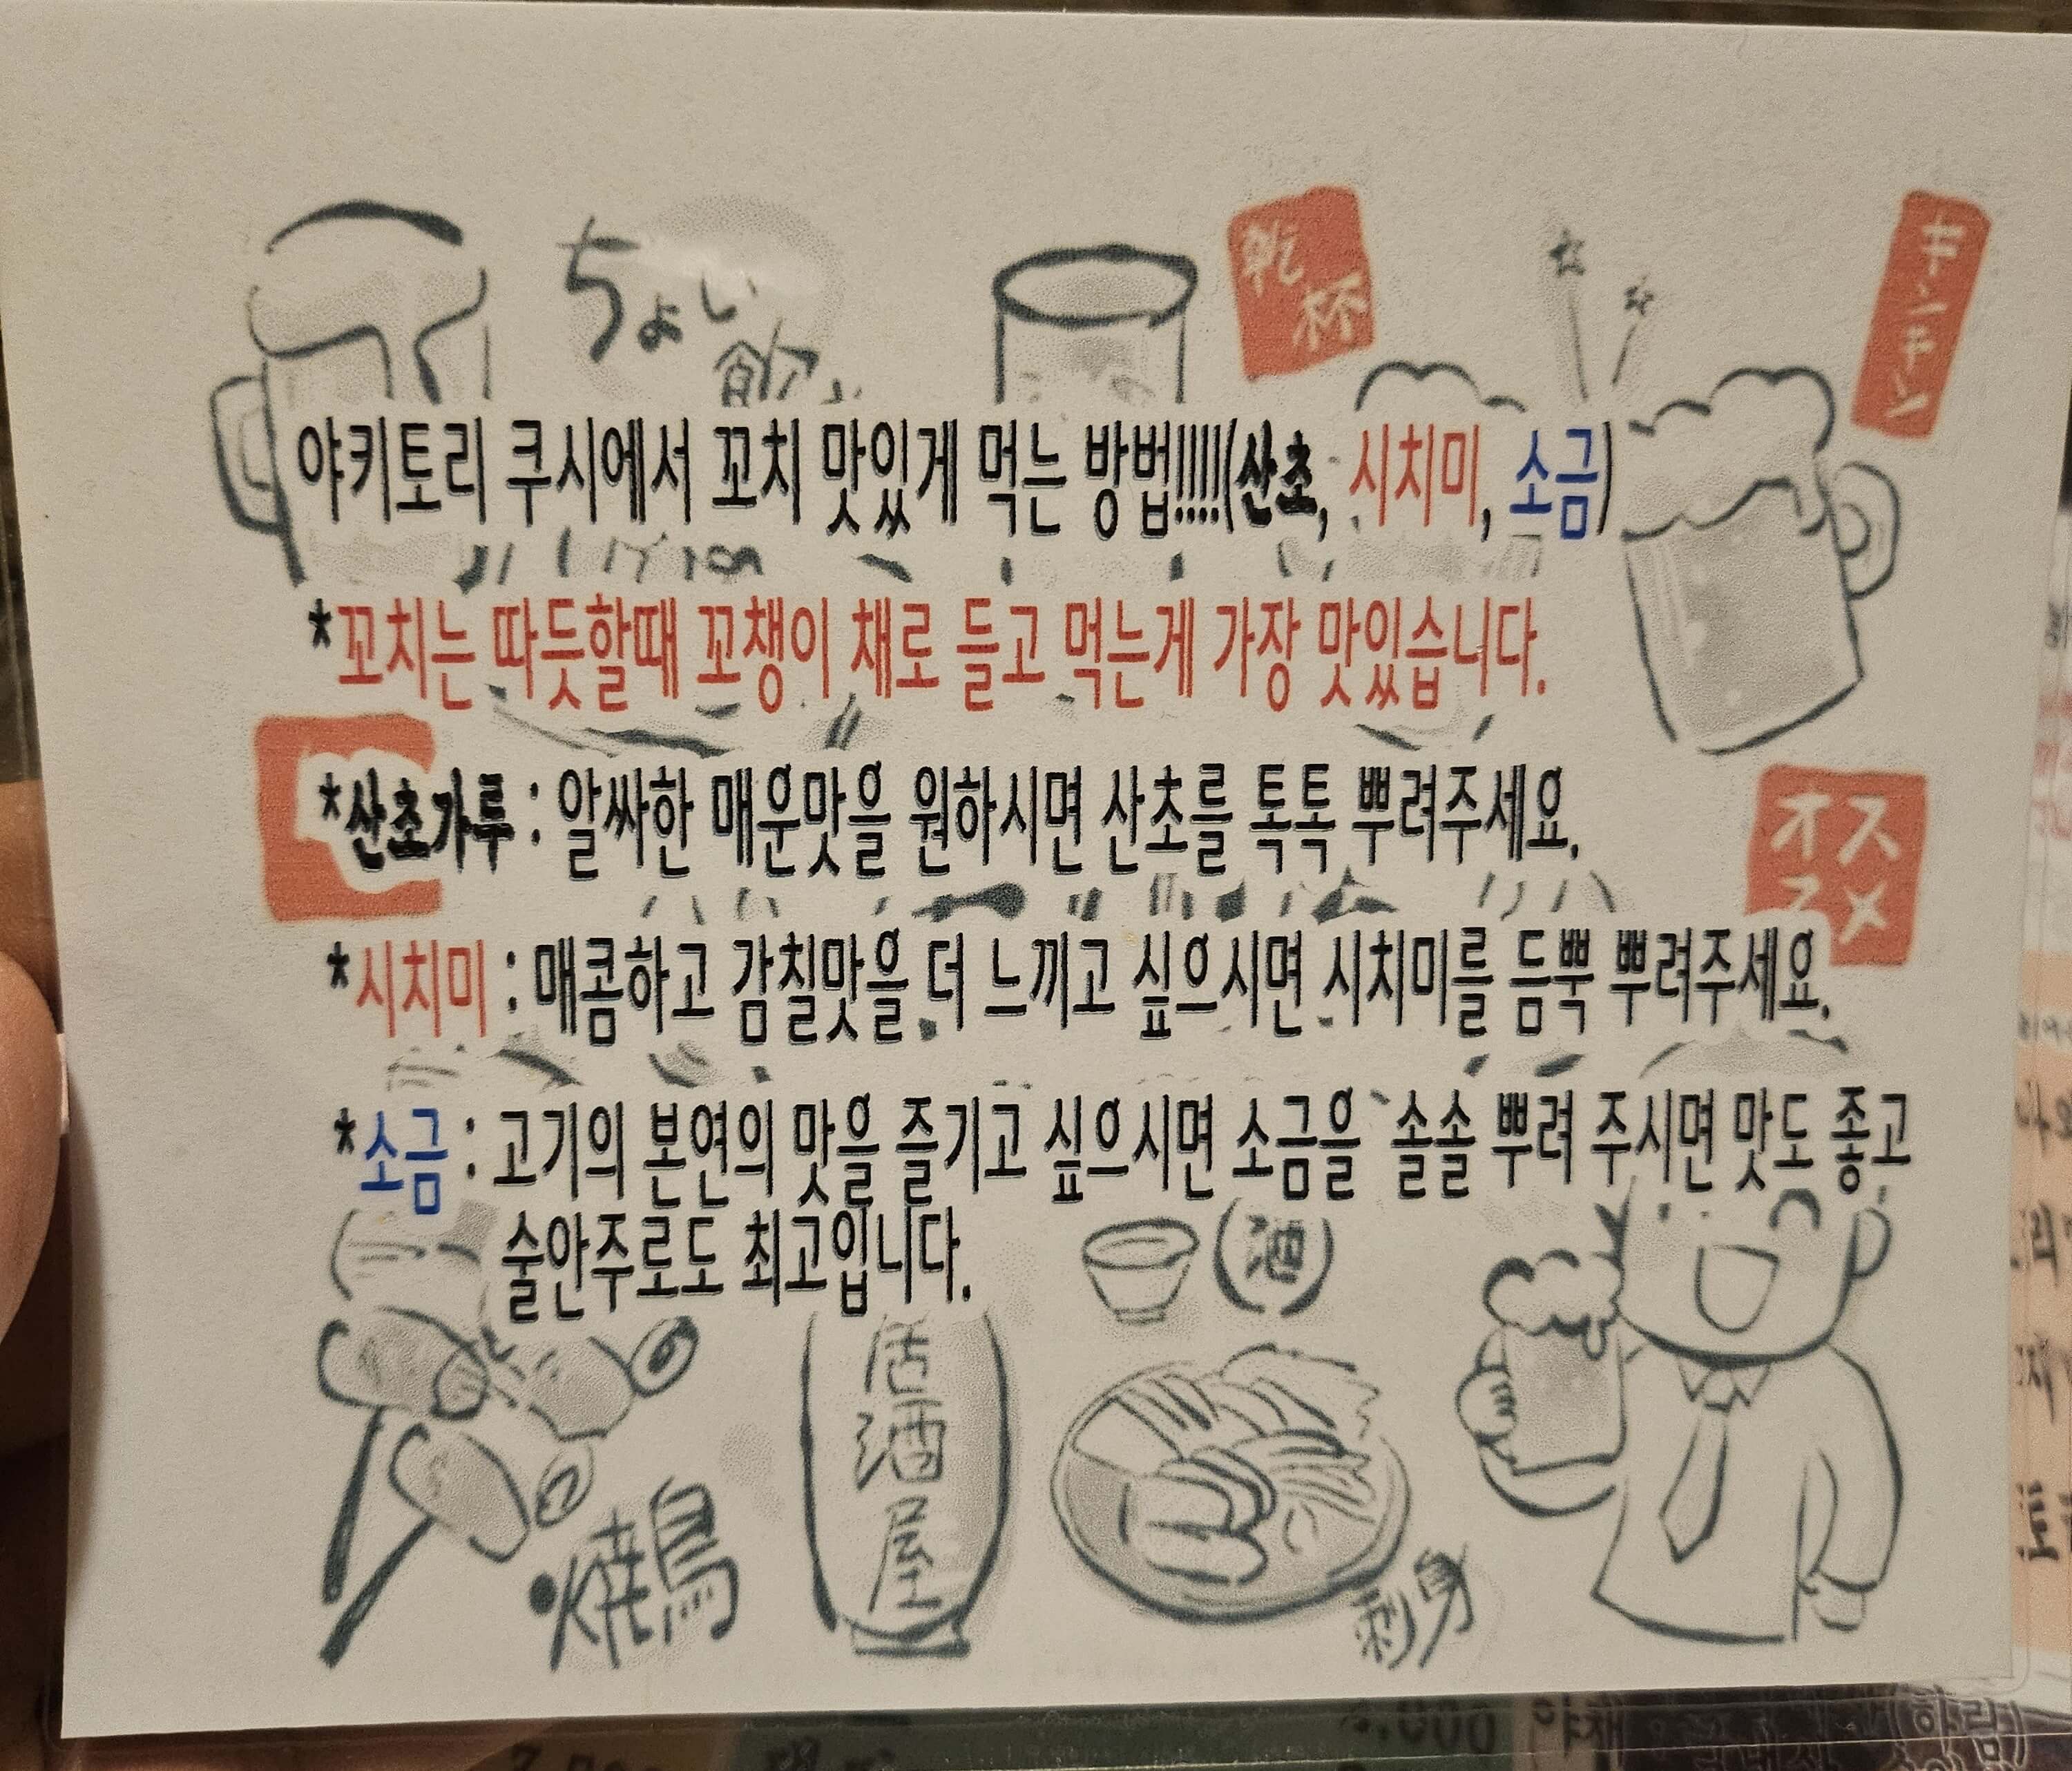 ちょい
飲み
乾
杯
キンキン
야키토리 쿠시에서 꼬치 맛있게 먹는 방법!!!!(산초, 시치미, 소금)
*꼬치는 따듯할때 꼬챙이 채로 들고 먹는게 가장 맛있습니다.
*산초가루 : 알싸한 매운맛을 원하시면 산초를 톡톡 뿌려주세요.
オス
スメ
*시치미 : 매콤하고 감칠맛을 더 느끼고 싶으시면 시치미를 듬뿍 뿌려주세요.
*소금 : 고기의 본연의 맛을 즐기고 싶으시면 소금을 솔솔 뿌려 주시면 맛도 좋고
술안주로도 최고입니다.
居酒屋
焼鳥
刺身
야채